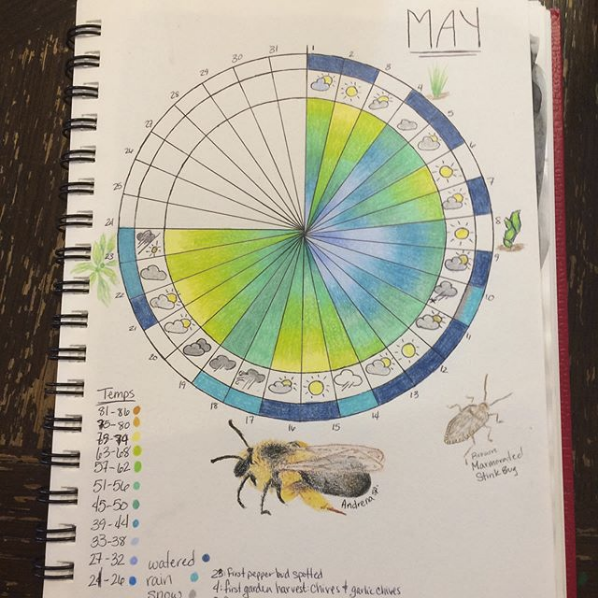 MAY
1
2
3
4
5
6
7
8
9
10
11
12
13
14
15
16
17
18
19
20
21
22
23
24
25
26
27
28
29
30
31
Andrena
Brown
Marmorated
Stink Bug
Temps
81-86
75-80
69-74
63-68
57-62
51-56
45-50
39-44
33-38
27-32
21-26
watered
rain
snow
23: first pepper bud spotted
4: first garden harvest: chives & garlic chives